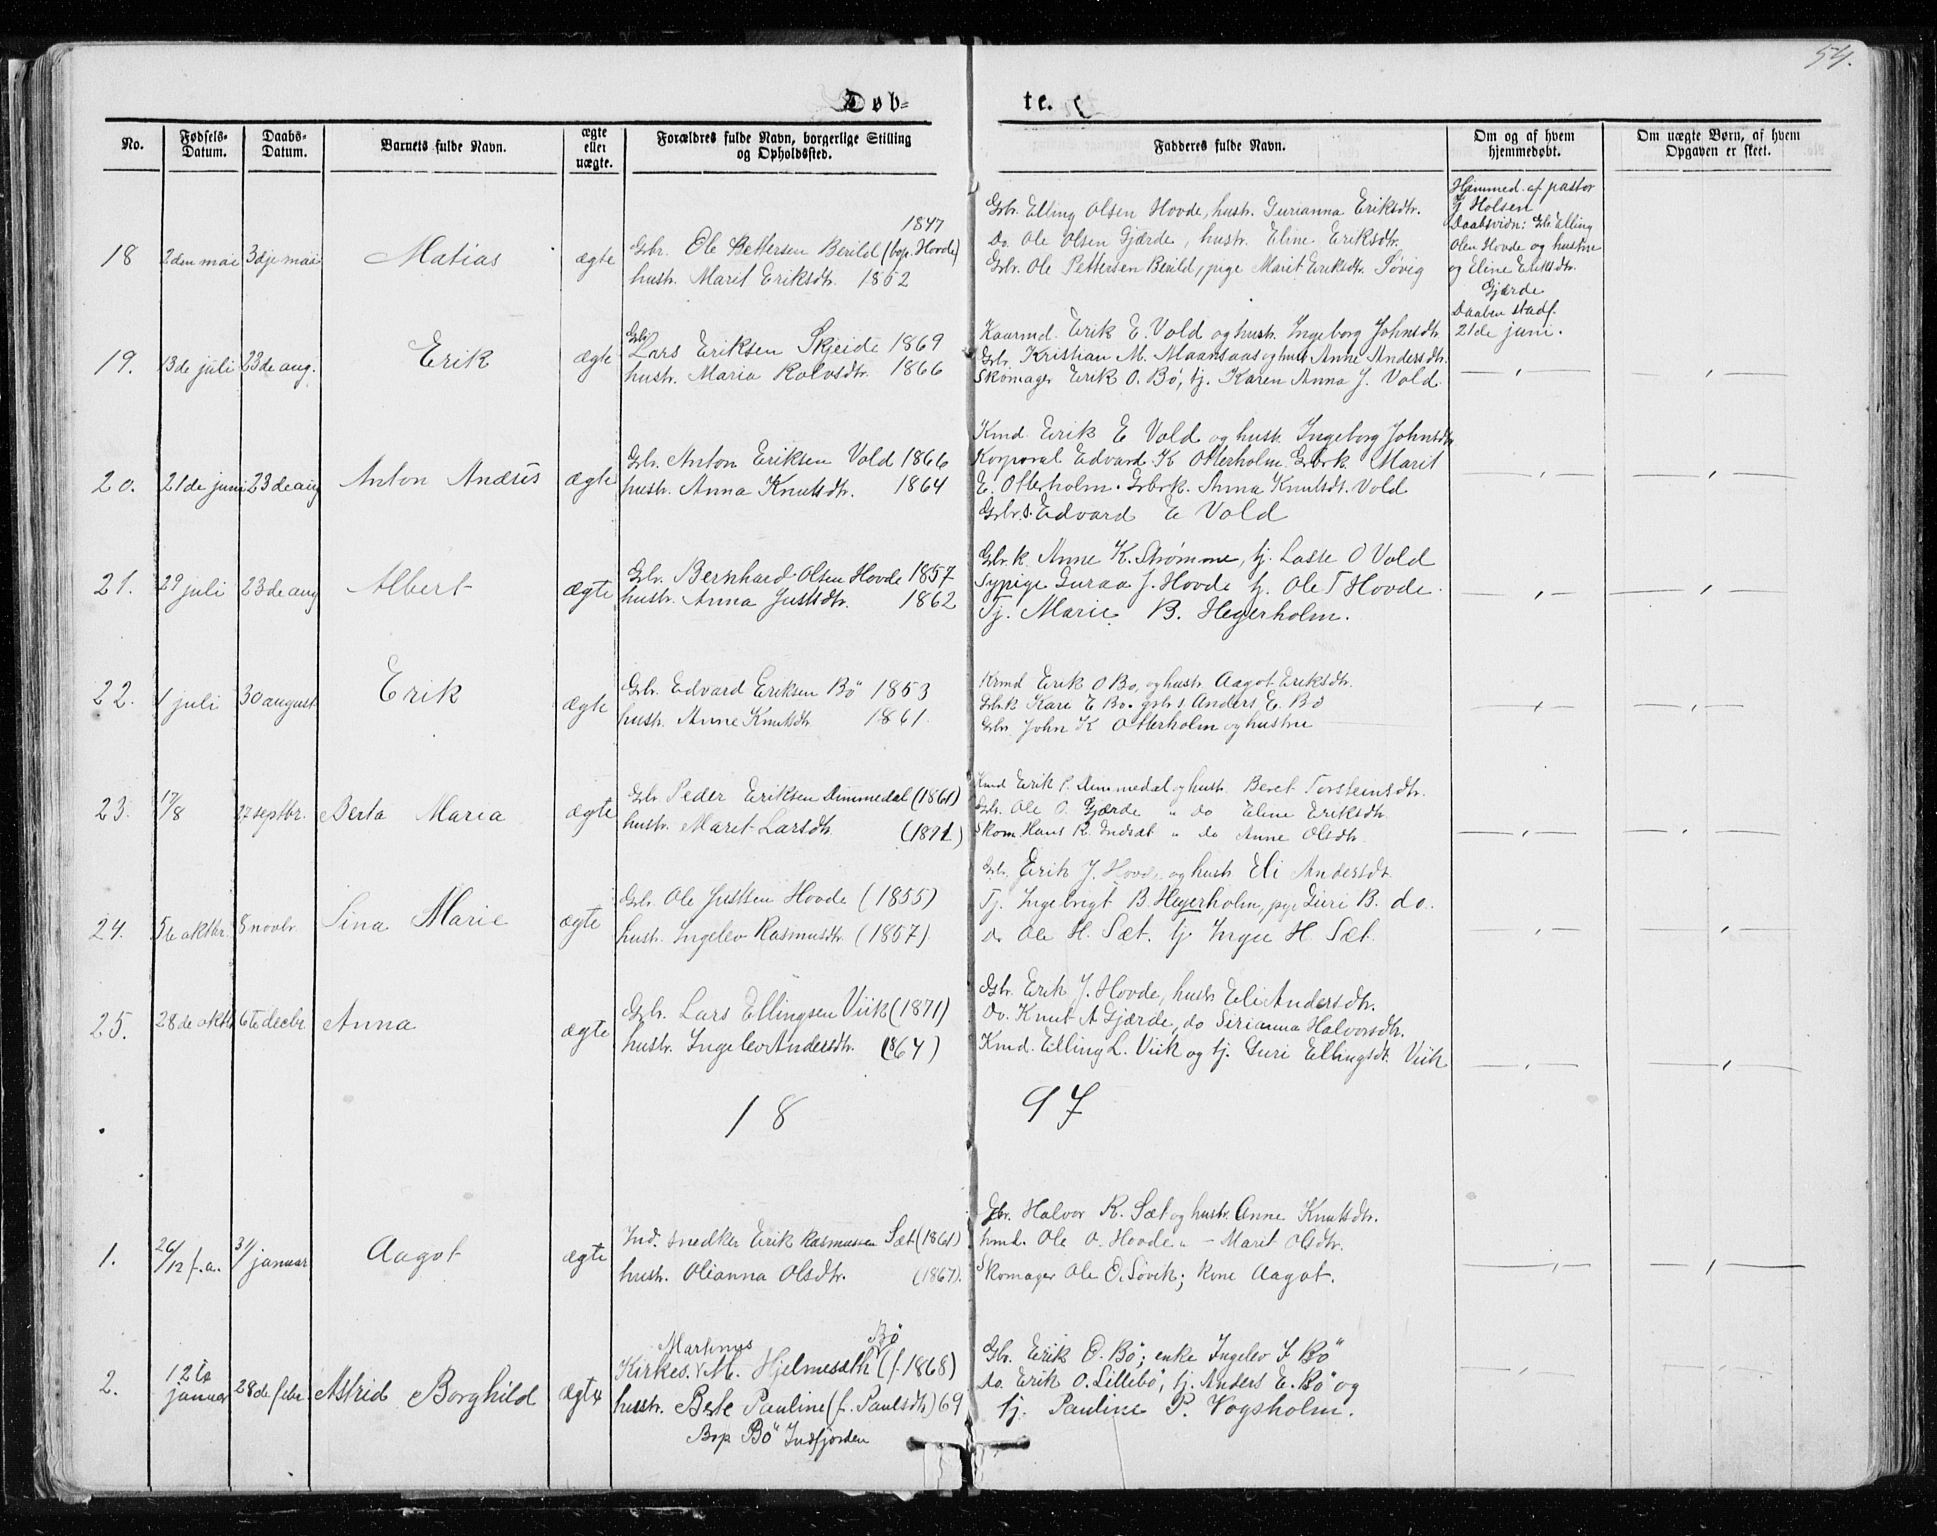 54.
Døb= te.
No. Fødsels-Datum. Daabs-Datum. Barnets fulde Navn. ægte eller uægte. Forældres fulde Navn, borgerlige Stilling og Opholdssted. Fadderes fulde Navn. Om og af hvem hjemmedøbt. Om uægte Børn, af hvem Opgaven er skeet.
18 2den mai 3dje mai Matias ægte
1847
Gbr. Ole Pettersen Berild (bop. Hovde)
hustr. Marit Eriksdtr. 1862
Gbr. Elling Olsen Hovde, hustr. Gurianna Eriksdtr.
Do. Ole Olsen Gjærde, hustr. Eline Eriksdtr.
Gbr. Ole Pettersen Berild, pige Marit Eriksdtr. Søvig
Hjemmed. af pastor
J. Holsen
Daabsvidn: Gbr. Elling
Olsen Hovde og hustru
og Eline Eriksdtr.
Gjærde
Daaben stadf.
21de juni.
19. 13de juli 23de aug. Erik ægte
Gbr. Lars Eriksen Skjeide 1869
hustr. Maria Rolvsdtr. 1866
Kaarmd. Erik E. Vold og hustr. Ingeborg Johnsdtr.
Gbr. Kristian M. Maansaas og hust Anne Andersdtr.
Skomager Erik O. Bö, tj. Karen Anna J. Vold.
20. 21de juni 23de aug Anton Andreas ægte
Gbr. Anton Eriksen Vold 1866
hustr. Anna Knutsdtr. 1864
Kmd. Erik E Vold og hustr. Ingeborg Johnsdtr
Korporal Edvard K Otterholm. Gbrk. Marit
E. Otterholm. Gbrk. Anna Knutsdt. Vold
Gbr.s. Edvard E Vold
21. 29 juli 23de aug Albert ægte
Gbr. Bernhard Olsen Hovde 1857
hustr. Anna Justsdtr. 1862
Gbr.k Anne K. Strømme, tj. Lasse O Vold
Sypige Guraa J. Hovde tj. Ole T Hovde.
Tj. Marie B. Hegerholm.
22. 1 juli 30 august Erik ægte
Gbr. Edvard Eriksen Bö 1853
hustr. Anne Knutsdtr 1861.
Krmd Erik O Bo, og hustr. Aagot Eriksdtr.
Gbr.k Kari E Bo. gbr.s. Anders E. Bö
Gbr. John K Otterholm og hustru
23. 17/8 27 septbr. Berta Maria ægte
Gbr. Peder Eriksen Dimmedal (1861)
hustr. Maret Larsdtr. (1871)
Kmd Erik P. Dimmedal og hustr. Beret Torsteinsdtr.
Gbr. Ole O. Gjærde " do Eline Eriksdtr.
Skom. Hans R. Indsæt " do Anne Olsdtr.
24. 5te oktbr. 8 novbr. Sina Marie ægte
Gbr. Ole Justsen Hovde (1855)
hust. Ingelev Rasmusdtr. (1857).
Gbr. Erik J. Hovde og hustr Eli Andersdt.
Tj. Ingebrigt B. Hegerholm, pige Guri B. do.
Do Ole H. Sæt. tj H. Sæt.
25. 28de oktb 6te decbr Anna ægte
Gbr. Lars Ellingsen Viik (1871)
hustr. Ingelev Andersdtr. (64)
Gbr. Erik J. Hovde, hustr Eli Andersdtr.
Do. Knut A Gjærde, do Sirianna Halvorsdtr.
Kmd. Elling L. Viik og tj. Guri Ellingsdt. Viik
18 97
1. 26/12 f.a. 31/1 januar Aagot ægte
Ind. snedker Erik Rasmussen Sæt (1861)
hustr. Olianna Olsdtr. (1867).
Gbr. Halvor R. Sæt og hustr. Anne Knutsdtr.
kmd. Ole O. Hovde " — Marit Olsdtr.
Skomager Ole O. Søvik; kone Aagot.
2. 12te januar 28de febr. Astrid Borghild ægte
Martinus Bö
Kirkes. M. Hjelmesæth (f. 1868)
hustr. Berte Pauline (f. Paulsdtr) 69
Bop Bö Indfjorden
Gbr. Erik O. Bö; enke Ingelev J Bö
do. Erik O. Lillebö; tj. Anders E. Bö og
tj. Pauline P. Vogsholm.